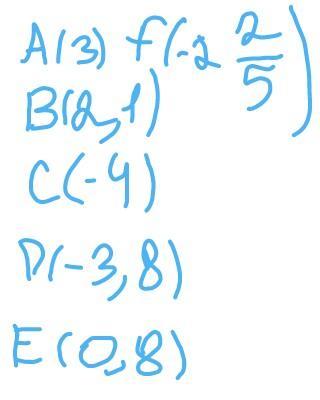 A(3) f(-2 2/5)
B(2,1)
C(-4)
D(-3,8)
E(0,8)